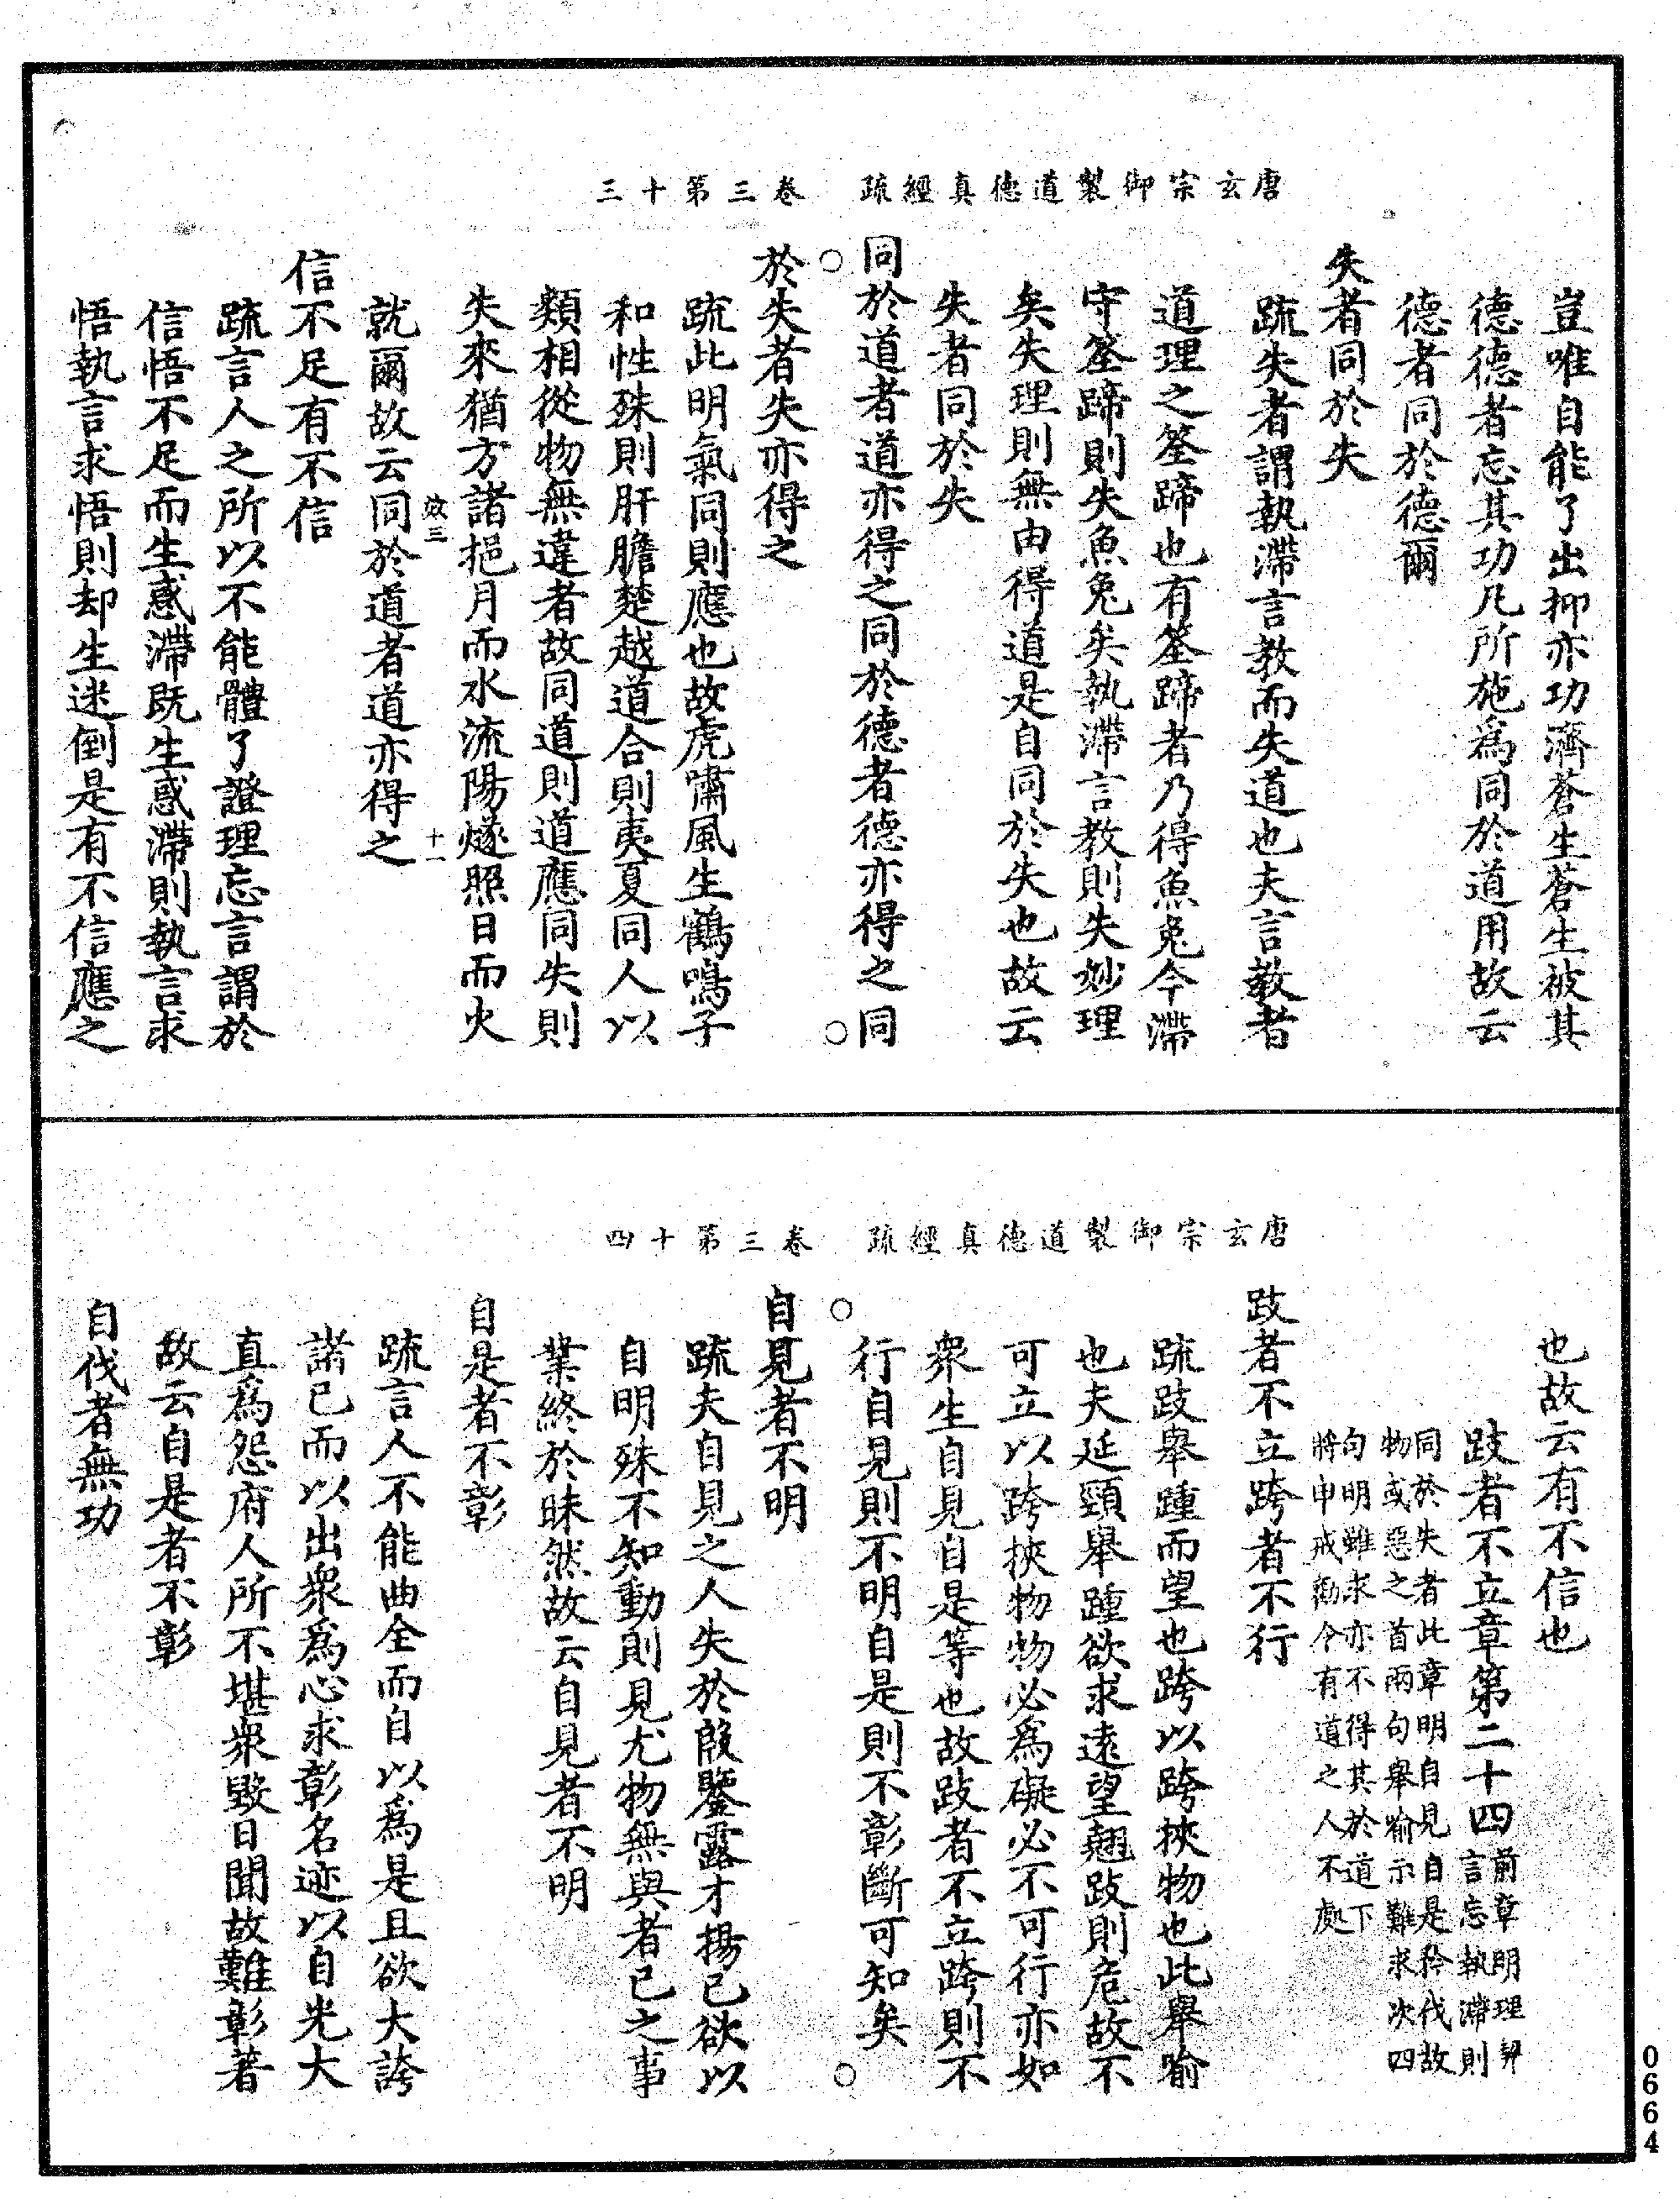 唐玄宗御製道德真經疏　卷三第十三
豈唯自能了出抑亦功濟蒼生蒼生被其
德德者忘其功凡所施為同於道用故云
德者同於德爾
失者同於失
疏失者謂執滯言教而失道也夫言教者
道理之筌蹄也有筌蹄者乃得魚兔今滯
守筌蹄則失魚兔矣執滯言教則失妙理
矣失理則無由得道是自同於失也故云
失者同於失
同於道者道亦得之同於德者德亦得之同
於失者失亦得之
疏此明氣同則應也故虎嘯風生鶴鳴子
和性殊則肝膽楚越道合則夷夏同人以
類相從物無違者故同道則道應同失則
失來猶方諸挹月而水流陽燧照日而火
效三　十一
就爾故云同於道者道亦得之
信不足有不信
疏言人之所以不能體了證理忘言謂於
信悟不足而生惑滯既生惑滯則執言求
悟執言求悟則却生迷倒是有不信應之
唐玄宗御製道德真經疏　卷三第十四
也故云有不信也
跂者不立章第二十四前章明理契言忘執滯則
同於失者此章明自見自是矜伐故
物或惡之首兩句舉喻示難求次四
句明雖求亦不得其於道下
將申戒勸令有道之人不處
跂者不立跨者不行
疏跂舉踵而望也跨以跨挾物也此舉喻
也夫延頸舉踵欲求遠望翹跂則危故不
可立以跨挾物物必為礙必不可行亦如
衆生自見自是等也故跂者不立跨則不
行自見則不明自是則不彰斷可知矣
自見者不明
疏夫自見之人失於殷鑒露才揚己欲以
自明殊不知動則見尤物無與者已之事
業終於昧然故云自見者不明
自是者不彰
疏言人不能曲全而自以為是且欲大誇
諸已而以出衆為心求彰名迹以自光大
直為怨府人所不堪衆毀日聞故難彰著
故云自是者不彰
自伐者無功
0664